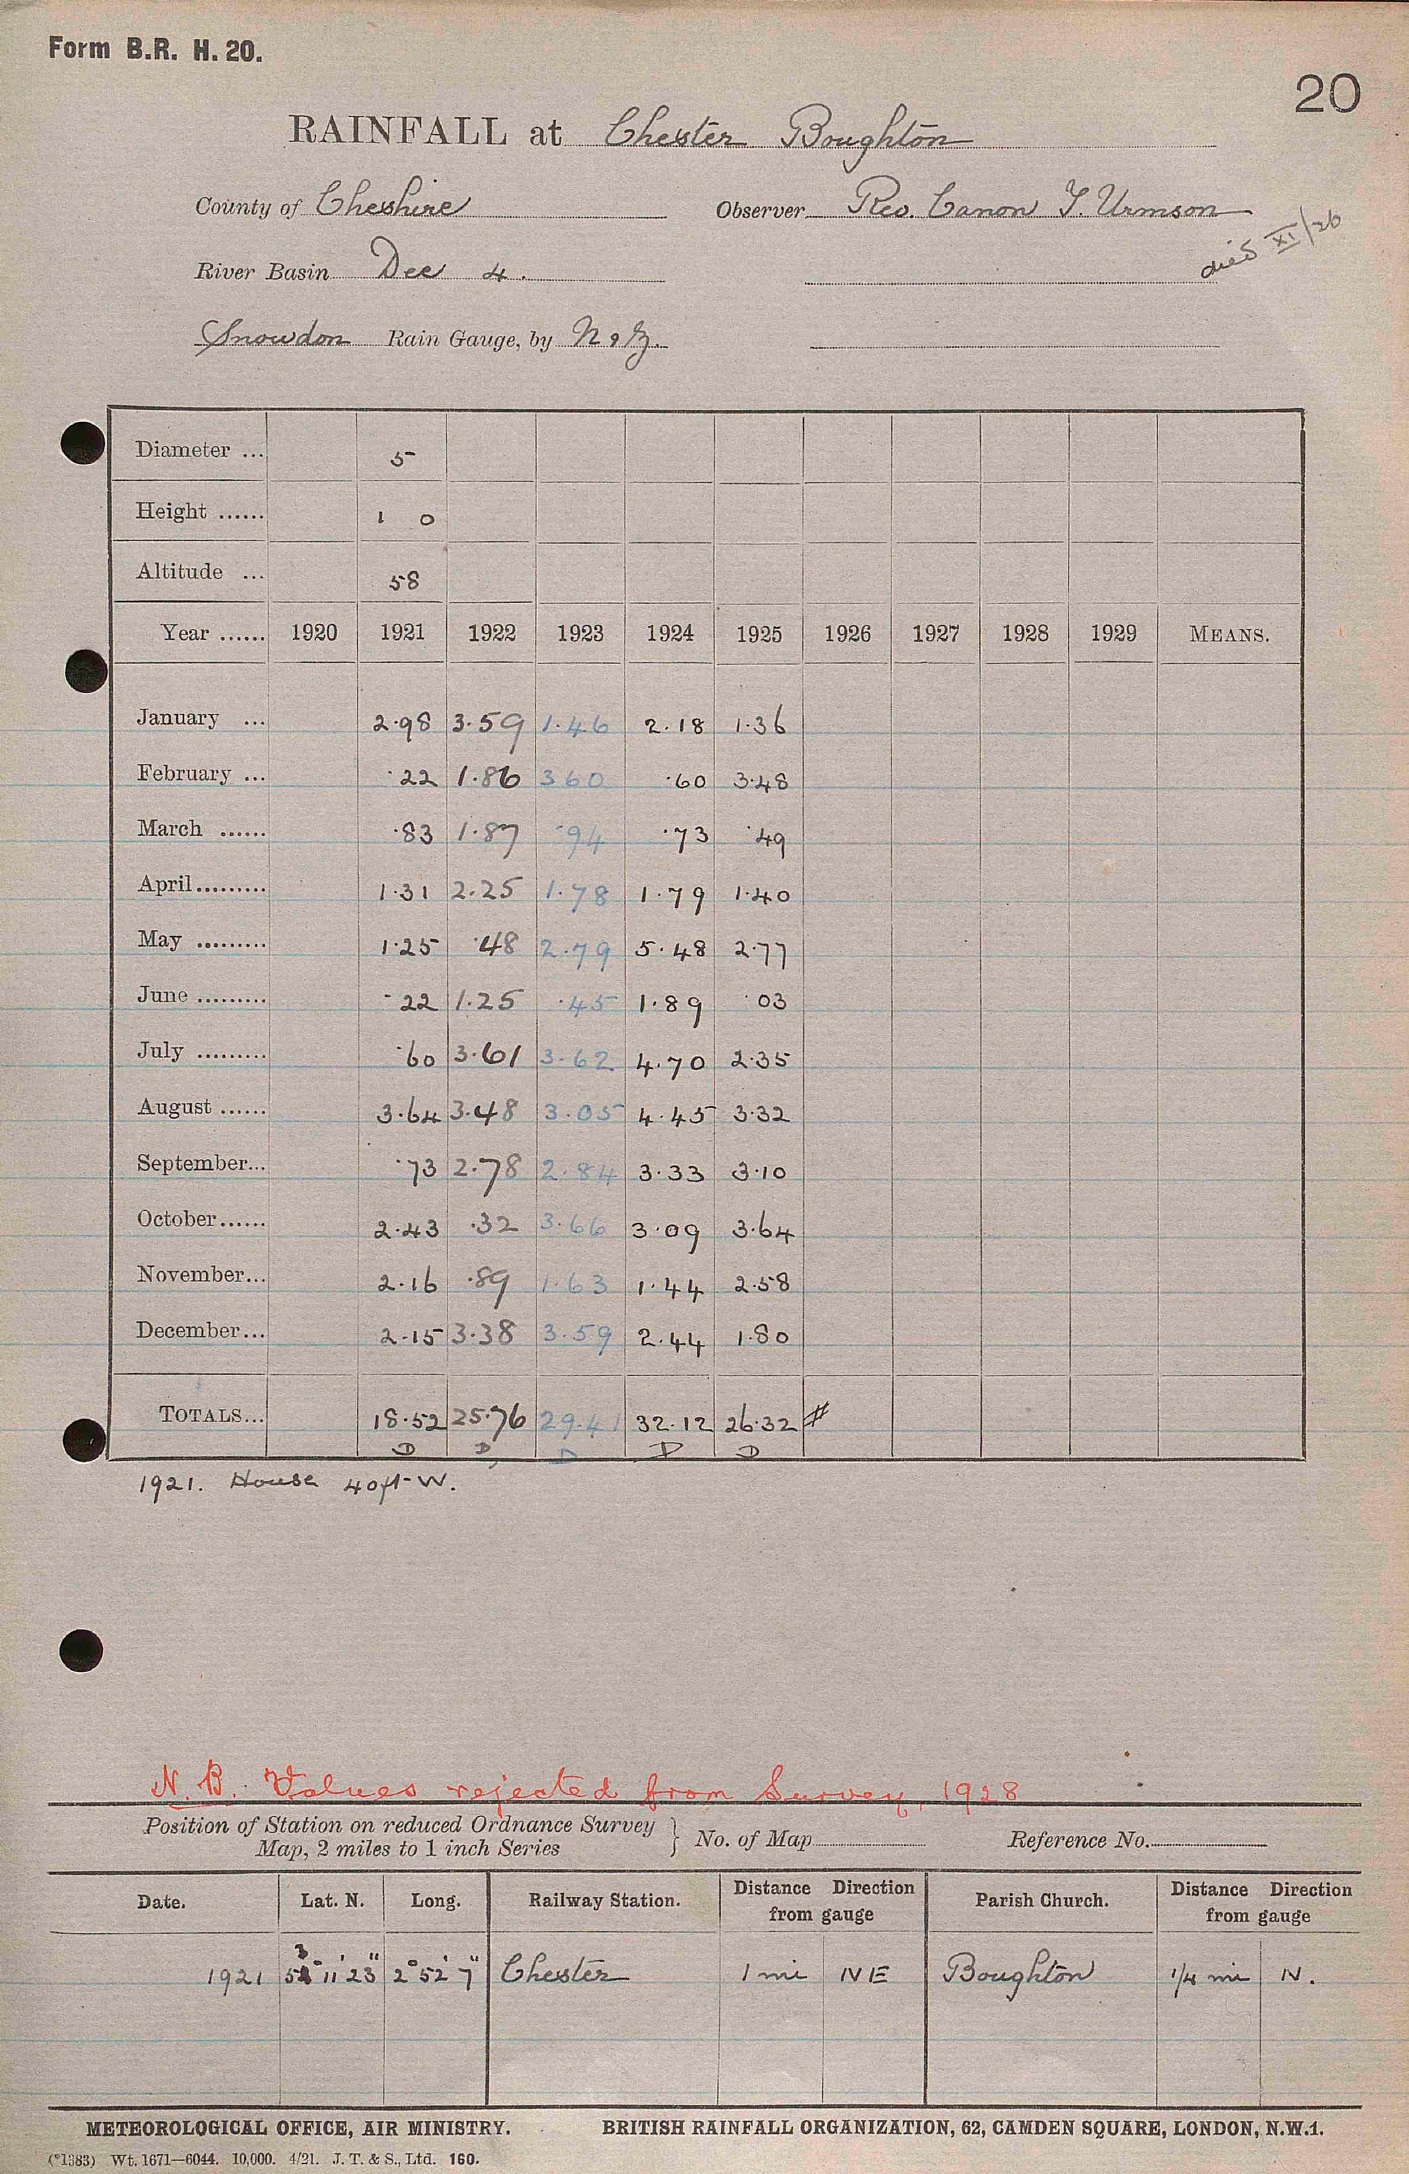 Form B.R. H. 20.
20
RAINFALL at Chester Boughton
County of Cheshire Observer Rev. Canon T. Urmson
died XI/26
River Basin Dee 4.
Snowdon Rain Gauge, by N & Z.
Diameter ... 5
Height ...... 1 0
Altitude ... 58
Year ...... 1920 1921 1922 1923 1924 1925 1926 1927 1928 1929 MEANS.
January ... 2.98 3.59 1.46 2.18 1.36
February ... .22 1.86 3 60 .60 3.48
March ...... .83 1.87 .94 .73 .49
April ......... 1.31 2.25 1.78 1.79 1.40
May ......... 1.25 .48 2.79 5.48 2.77
June ......... .22 1.25 .45 1.89 .03
July ......... .60 3.61 3.62 4.70 2.35
August ...... 3.64 3.48 3.05 4.45 3.32
September... .73 2.78 2.84 3.33 3.10
October ...... 2.43 .32 3.66 3.09 3.64
November... 2.16 .89 1.63 1.44 2.58
December... 2.15 3.38 3.59 2.44 1.80
TOTALS... 18.52 25.76 29.41 32.12 26.32 #
D D D D D
1921. House 40ft W.
N.B. Values rejected from Survey, 1928
Position of Station on reduced Ordnance Survey Map, 2 miles to 1 inch Series } No. of Map Reference No.
Date. Lat. N. Long. Railway Station. Distance Direction from gauge Parish Church. Distance Direction from gauge
1921 53° 11' 23" 2° 52' 7" Chester 1 mi NE Boughton 1/4 mi N.
METEOROLOGICAL OFFICE, AIR MINISTRY. BRITISH RAINFALL ORGANIZATION, 62, CAMDEN SQUARE, LONDON, N.W.1.
(*1383) Wt. 1671—6044. 10,000. 4/21. J. T. & S., Ltd. 160.